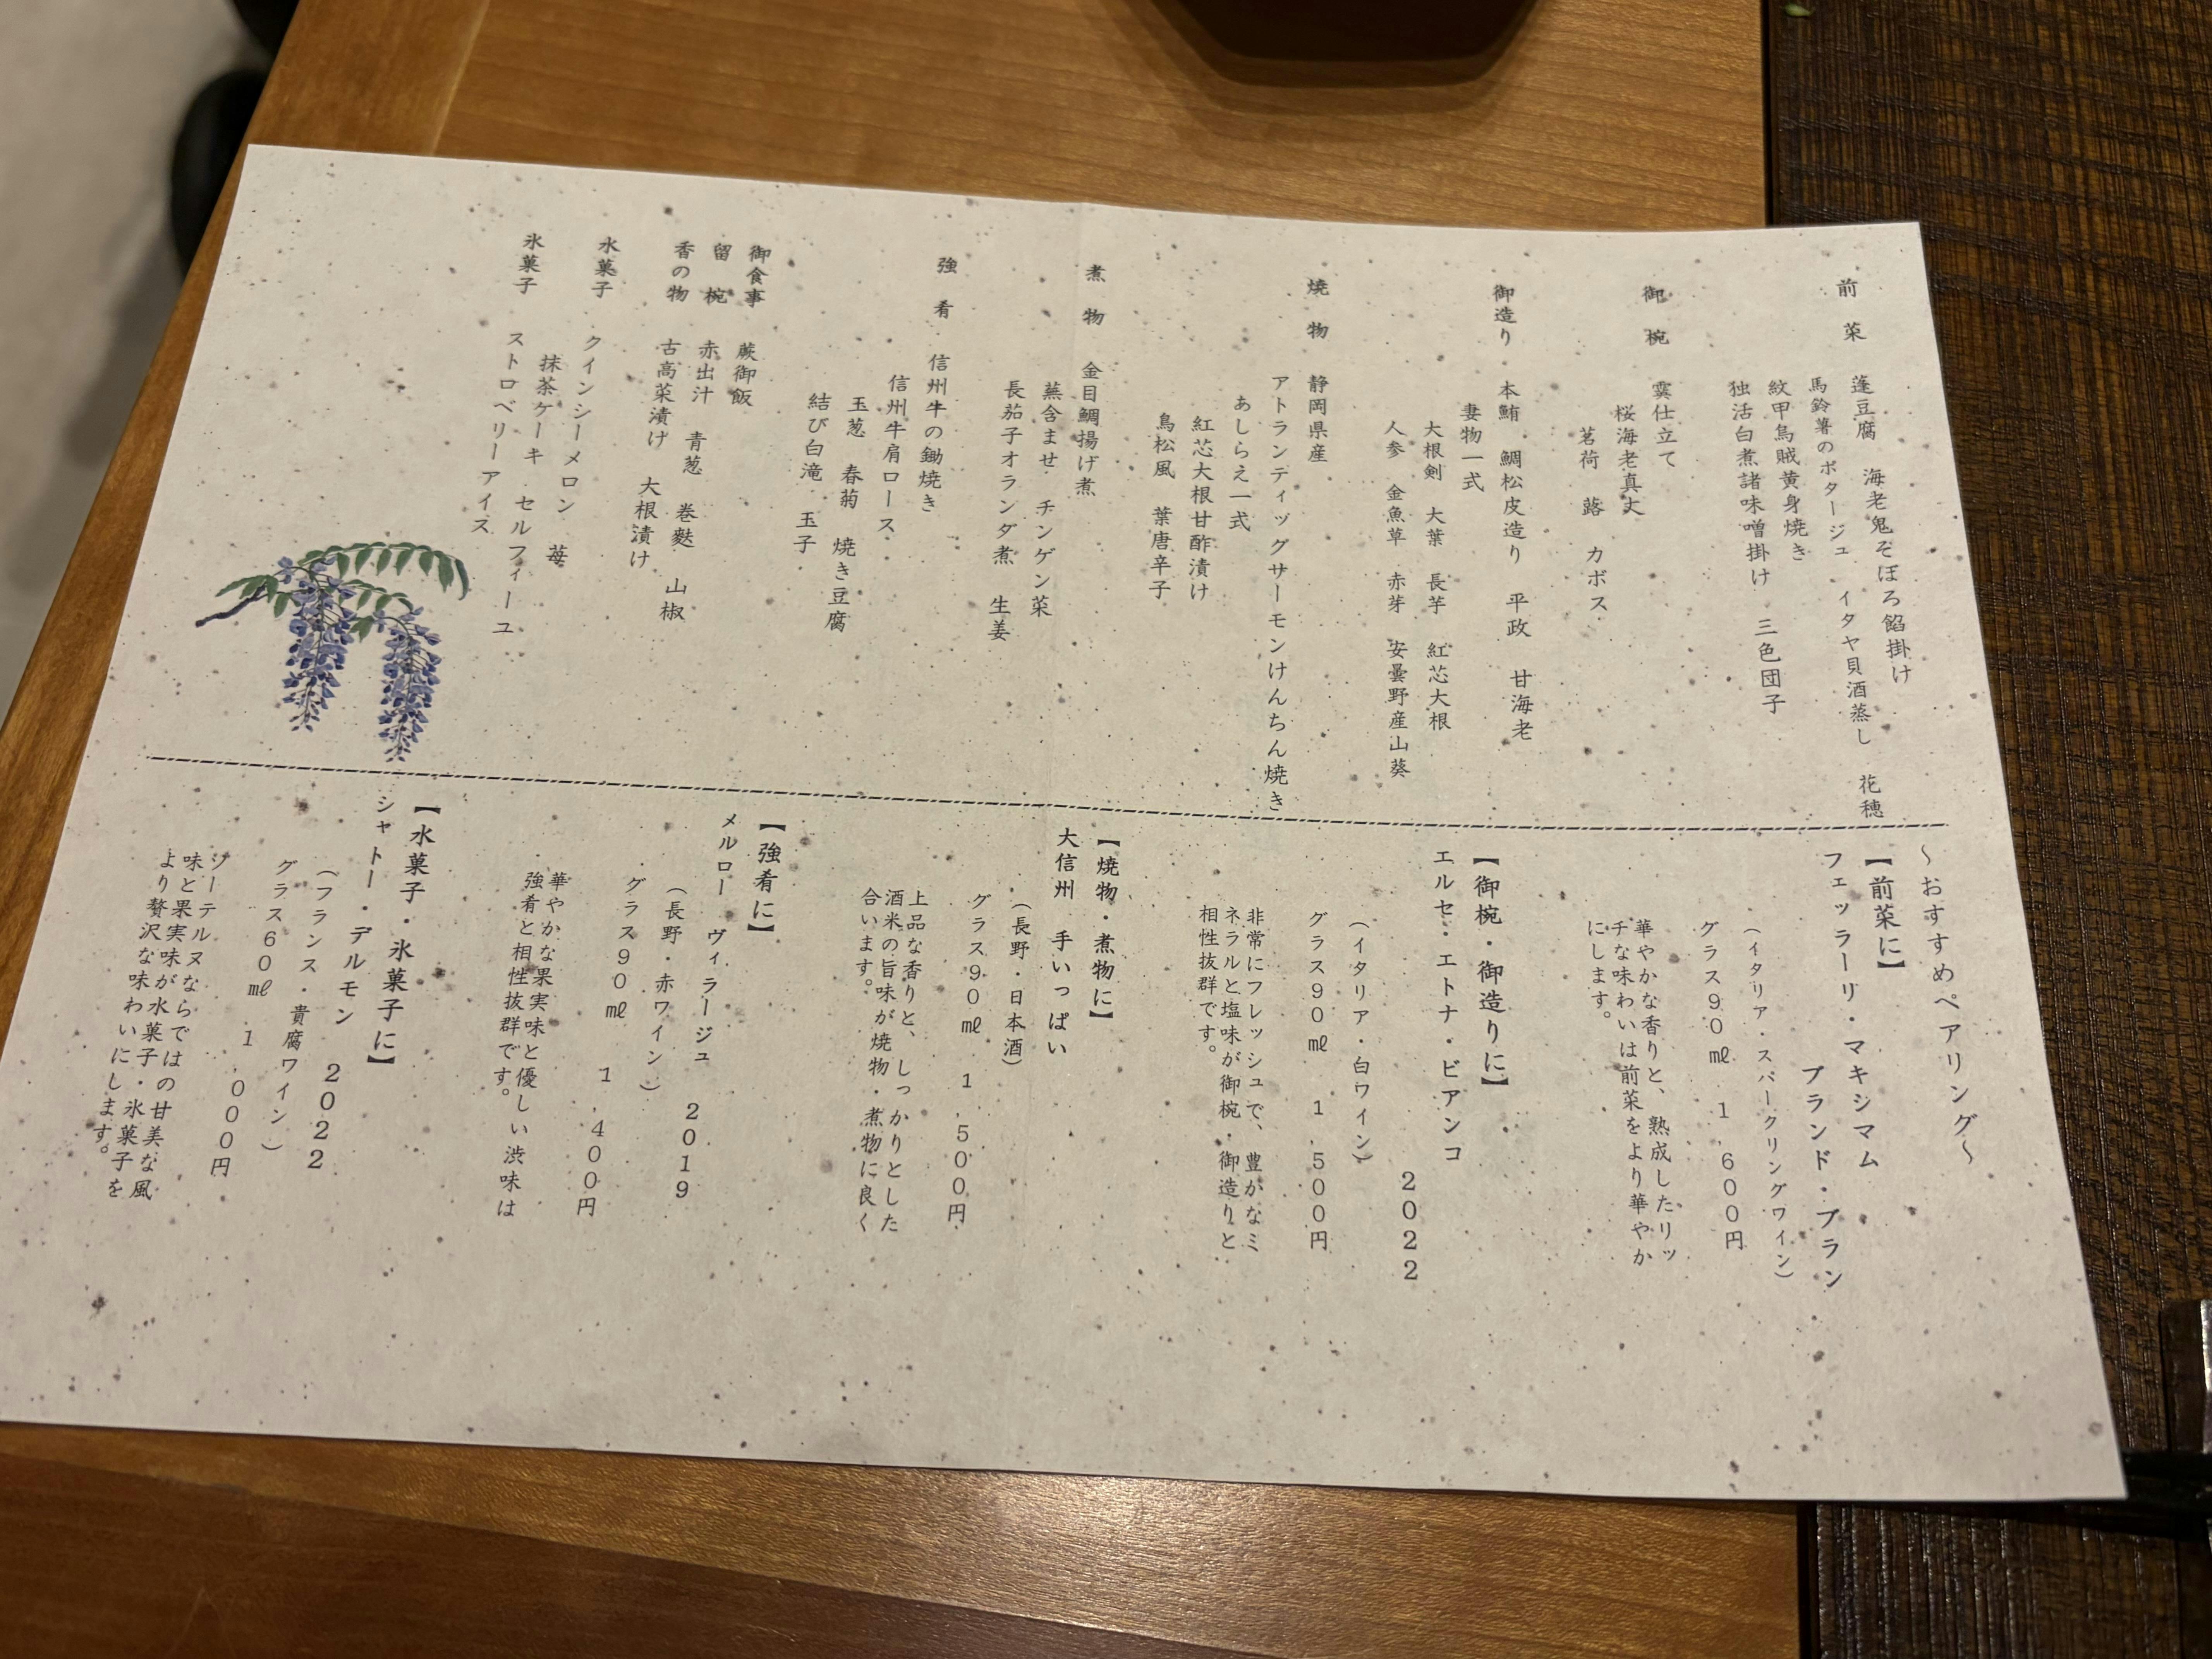 前菜 蓬豆腐 海老鬼そぼろ餡掛け
馬鈴薯のポタージュ イタヤ貝酒蒸し 花穂
紋甲烏賊黄身焼き
独活白煮諸味噌掛け 三色団子
御椀 霙仕立て
桜海老真丈
茗荷 蕗 カボス
御造り 本鮪 鯛松皮造り 平政 甘海老
妻物一式
大根剣 大葉 長芋 紅芯大根
人参 金魚草 赤芽 安曇野産山葵
焼物 静岡県産
アトランティックサーモンけんちん焼き
あしらえ一式
紅芯大根甘酢漬け
鳥松風 葉唐辛子
煮物 金目鯛揚げ煮
蕪含ませ チンゲン菜
長茄子オランダ煮 生姜
強肴 信州牛の鋤焼き
信州牛肩ロース
玉葱 春菊 焼き豆腐
結び白滝 玉子
御食事 蕨御飯
留椀 赤出汁 青葱 巻麩 山椒
香の物 古高菜漬け 大根漬け
水菓子 クインシーメロン 苺
氷菓子 抹茶ケーキ セルフィーユ
ストロベリーアイス
～おすすめペアリング～
【前菜に】
フェッラーリ・マキシマム
ブランド・ブラン
(イタリア・スパークリングワイン)
グラス90㎖ 1,600円
華やかな香りと、熟成したリッ
チな味わいは前菜をより華やか
にします。
【御椀・御造りに】
エルセ・エトナ・ビアンコ
2022
(イタリア・白ワイン)
グラス90㎖ 1,500円
非常にフレッシュで、豊かなミ
ネラルと塩味が御椀・御造りと
相性抜群です。
【焼物・煮物に】
大信州 手いっぱい
(長野・日本酒)
グラス90㎖ 1,500円
上品な香りと、しっかりとした
酒米の旨味が焼物・煮物に良く
合います。
【強肴に】
メルロー ヴィラージュ 2019
(長野・赤ワイン)
グラス90㎖ 1,400円
華やかな果実味と優しい渋味は
強肴と相性抜群です。
【水菓子・氷菓子に】
シャトー・デルモン 2022
(フランス・貴腐ワイン)
グラス60㎖ 1,000円
ソーテルヌならではの甘美な風
味と果実味が水菓子・氷菓子を
より贅沢な味わいにします。